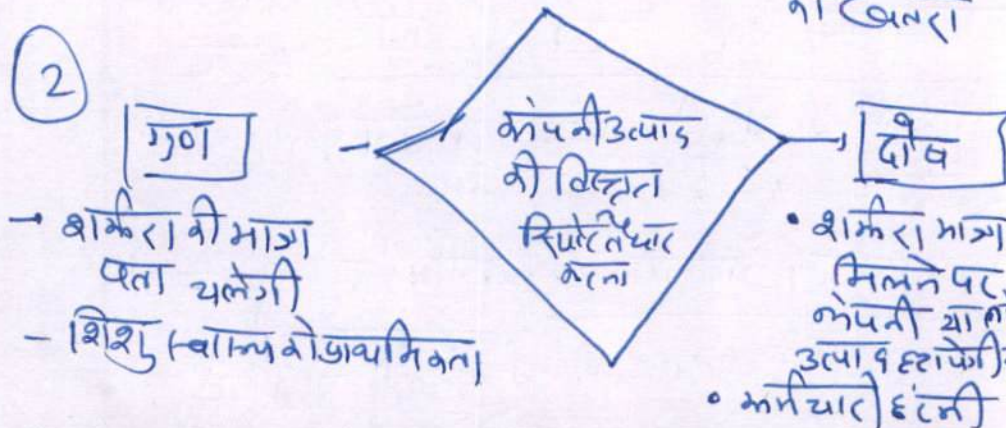 का खतरा
2
गुण
→ शर्करा की मात्रा
पता चलेगी
- शिशु स्वास्थ्य को प्राथमिकता
कंपनी उत्पाद
की विस्तृत
रिपोर्ट तैयार
करना
दोष
• शर्करा मात्रा
मिलने पर
कंपनी या तो
उत्पाद हटाएगी
• कर्मचारी